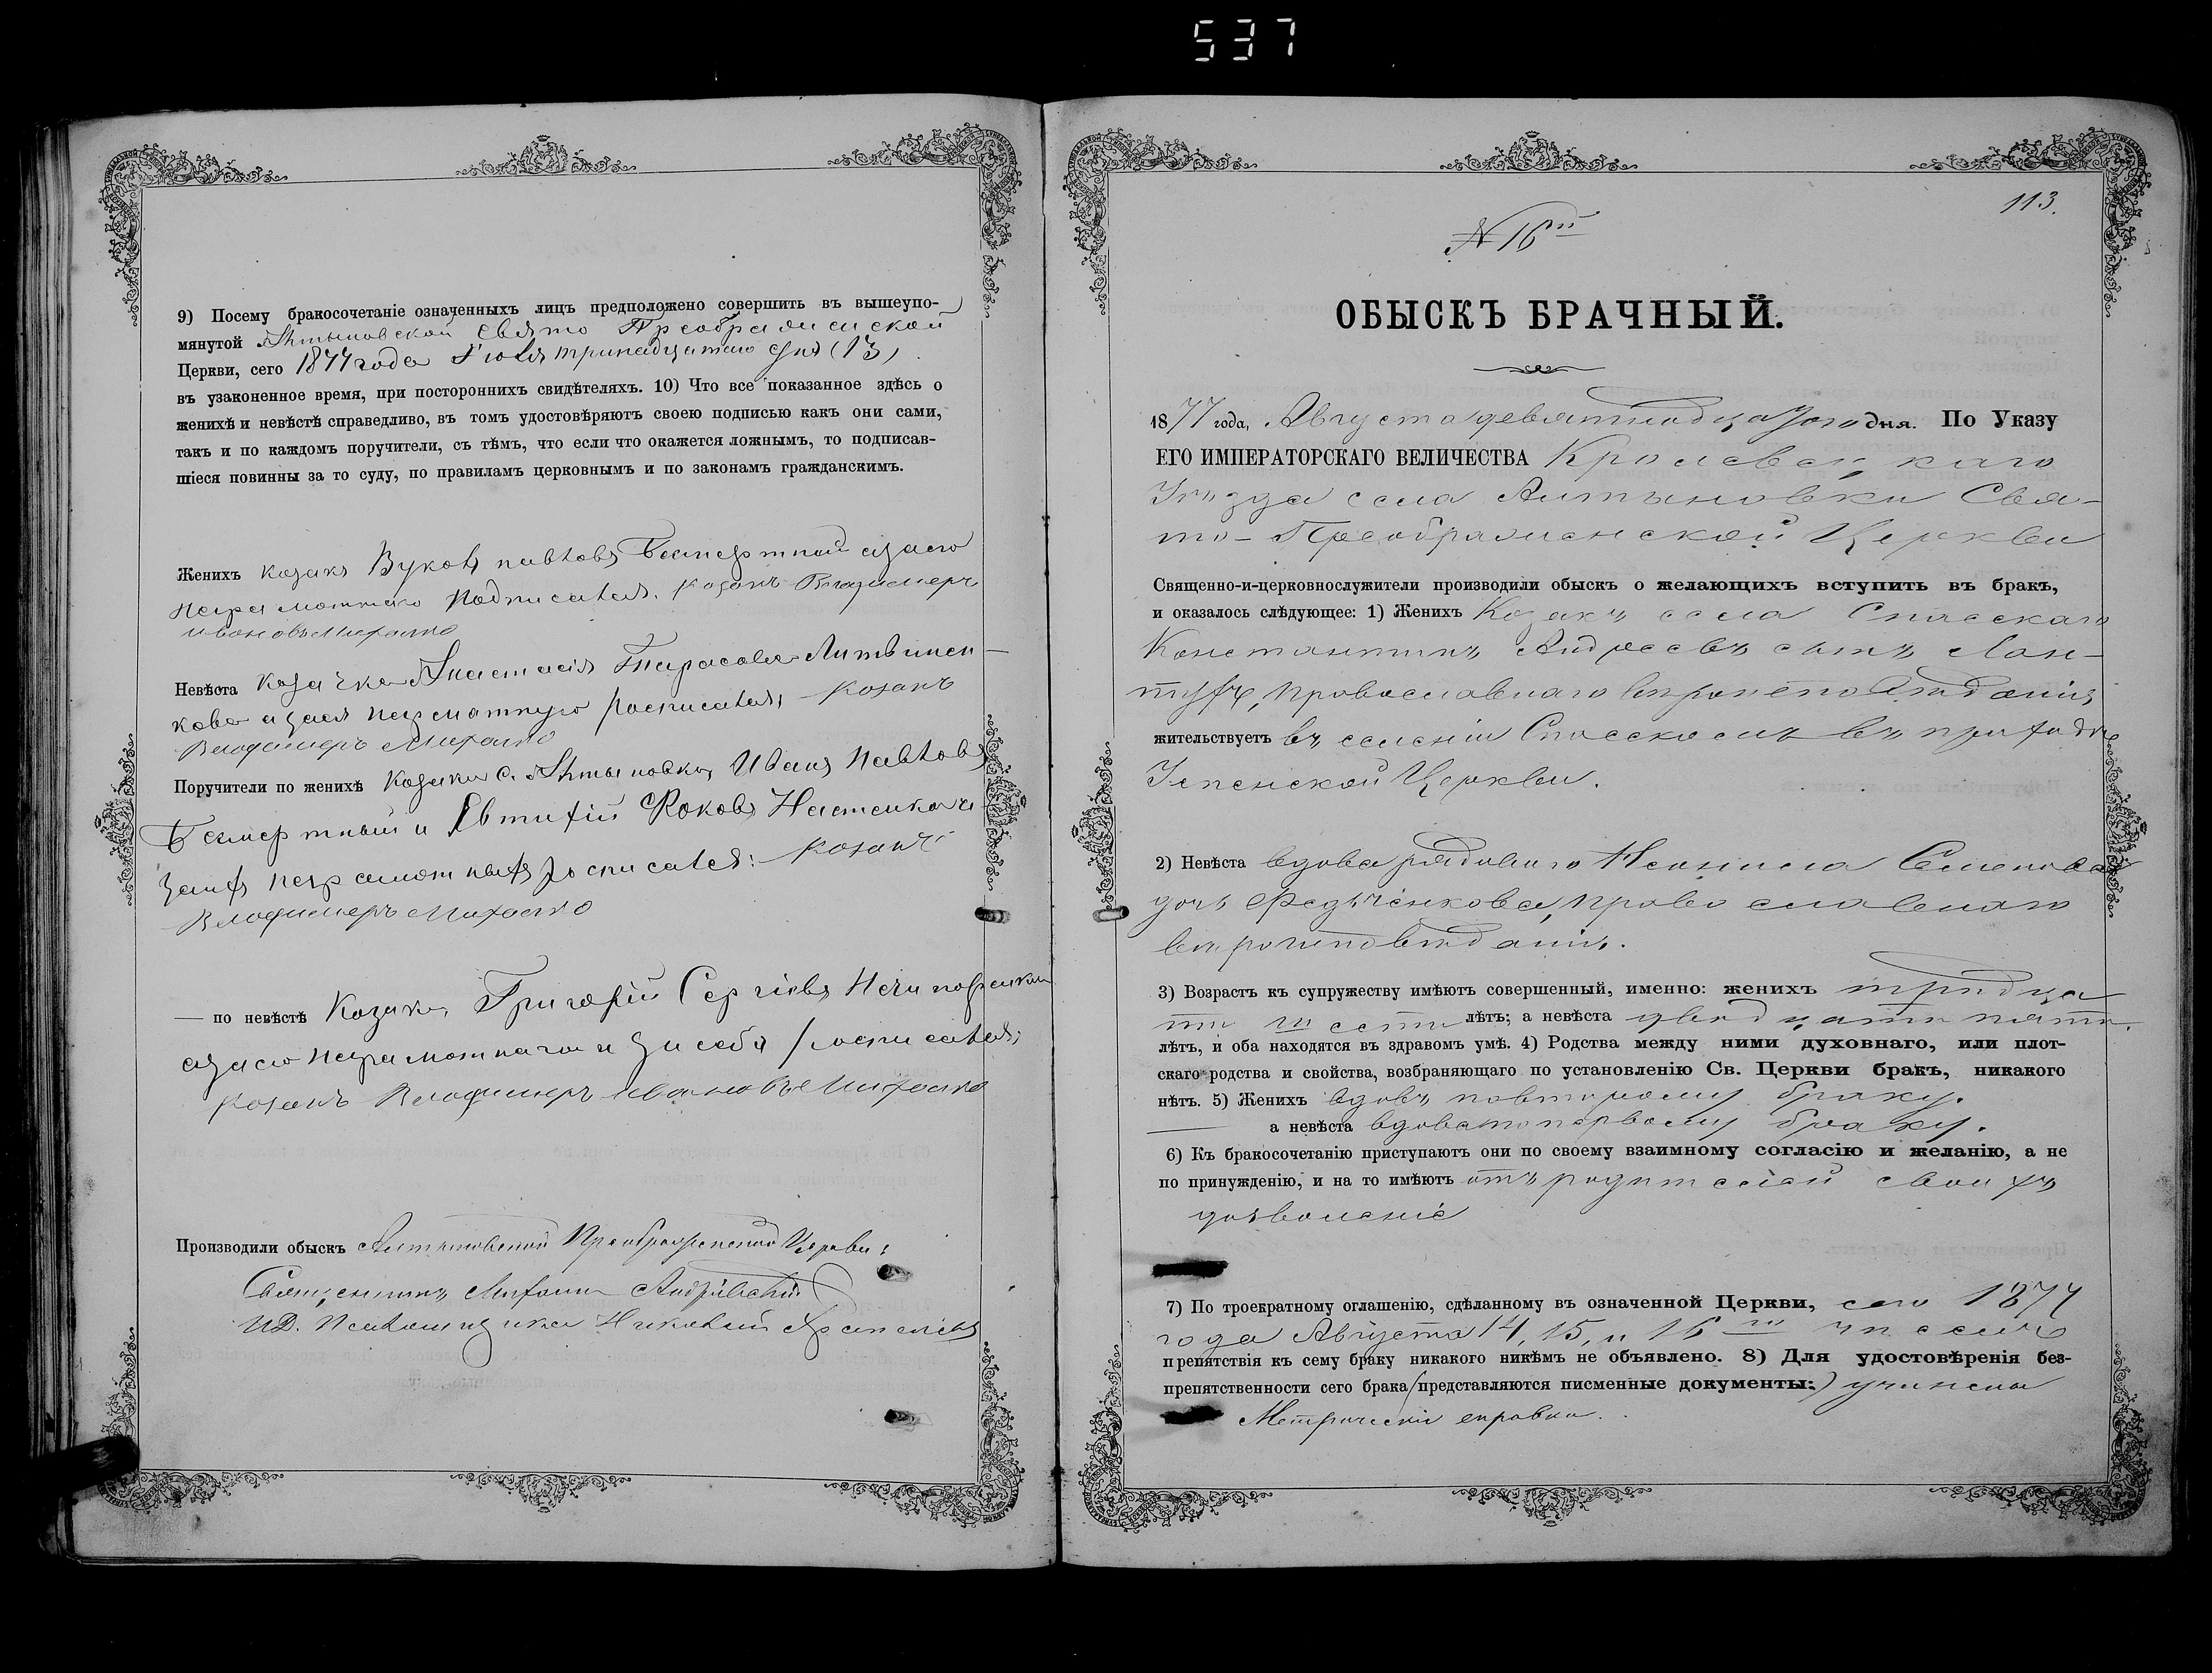 537
9) Посему бракосочетаніе означенныхъ лицъ предположено совершить въ вышеупо-
мянутой Алтыновской Свято Преображенской
Церкви, сего 1877 года Іюля тринадцатаго дня (13)
въ узаконенное время, при постороннихъ свидѣтеляхъ. 10) Что все показанное здѣсь о
женихѣ и невѣстѣ справедливо, въ томъ удостовѣряютъ своею подписью какъ они сами,
такъ и по каждомъ поручители, съ тѣмъ, что если что окажется ложнымъ, то подписав-
шіеся повинны за то суду, по правиламъ церковнымъ и по законамъ гражданскимъ.
Женихъ козакъ Павловъ Безсмертной а за его
неграмотнаго подписался. козакъ Владимеръ
Ивановъ Михалко
Невѣста козачка Анастасія Тарасова Литвинен-
кова а за ея неграмотную росписался, козакъ
Владимеръ Михалко
Поручители по женихѣ Козаки с. Алтыновки, Иванъ Павловъ
Безсмертный и Евтифій Настенко а
за ихъ неграмотныхъ росписался: козакъ
Владимеръ Михалко
— по невѣстѣ Козакъ, Григорій Сергіевъ Нечипоренко
а за его неграмотнаго и за себя росписался;
козакъ Владимеръ Ивановъ Михалко
Производили обыскъ Алтыновской Преображенской Церкви:
Священникъ Андріевскій
И.Д. Псаломщика Николай
113.
№ 16й
ОБЫСКЪ БРАЧНЫЙ.
1877 года, Августа девятнадцатого дня. По Указу
ЕГО ИМПЕРАТОРСКАГО ВЕЛИЧЕСТВА Кролевецкаго
Уѣзда села Алтыновки Свя-
то-Преображенской Церкви
Священно-и-церковнослужители производили обыскъ о желающихъ вступить въ бракъ,
и оказалось слѣдующее: 1) Женихъ Козакъ села Спасскаго
Константинъ Андреевъ сынъ Лан-
тухъ, православнаго вѣроисповѣданія,
жительствуетъ въ селеніи Спасскомъ въ приходѣ
Успенской Церкви.
2) Невѣста вдова рядового Неонила Семенова
дочь Федченкова, православнаго
вѣроисповѣданія.
3) Возрастъ къ супружеству имѣютъ совершенный, именно: женихъ тридца
ти шести лѣтъ; а невѣста двадцати пяти.
лѣтъ, и оба находятся въ здравомъ умѣ. 4) Родства между ними духовнаго, или плот-
скаго родства и свойства, возбраняющаго по установленію Св. Церкви бракъ, никакого
нѣтъ. 5) Женихъ вдовъ по второму браку.
а невѣста вдова по первому браку.
6) Къ бракосочетанію приступаютъ они по своему взаимному согласію и желанію, а не
по принужденію, и на то имѣютъ отъ родителей своихъ
дозволеніе
7) По троекратному оглашенію, сдѣланному въ означенной Церкви, сего 1877
года Августа 14, 15, и 16го числъ
препятствія къ сему браку никакого никѣмъ не объявлено. 8) Для удостовѣренія без-
препятственности сего брака (представляются писменные документы:) учинены
Метрическіе справки.